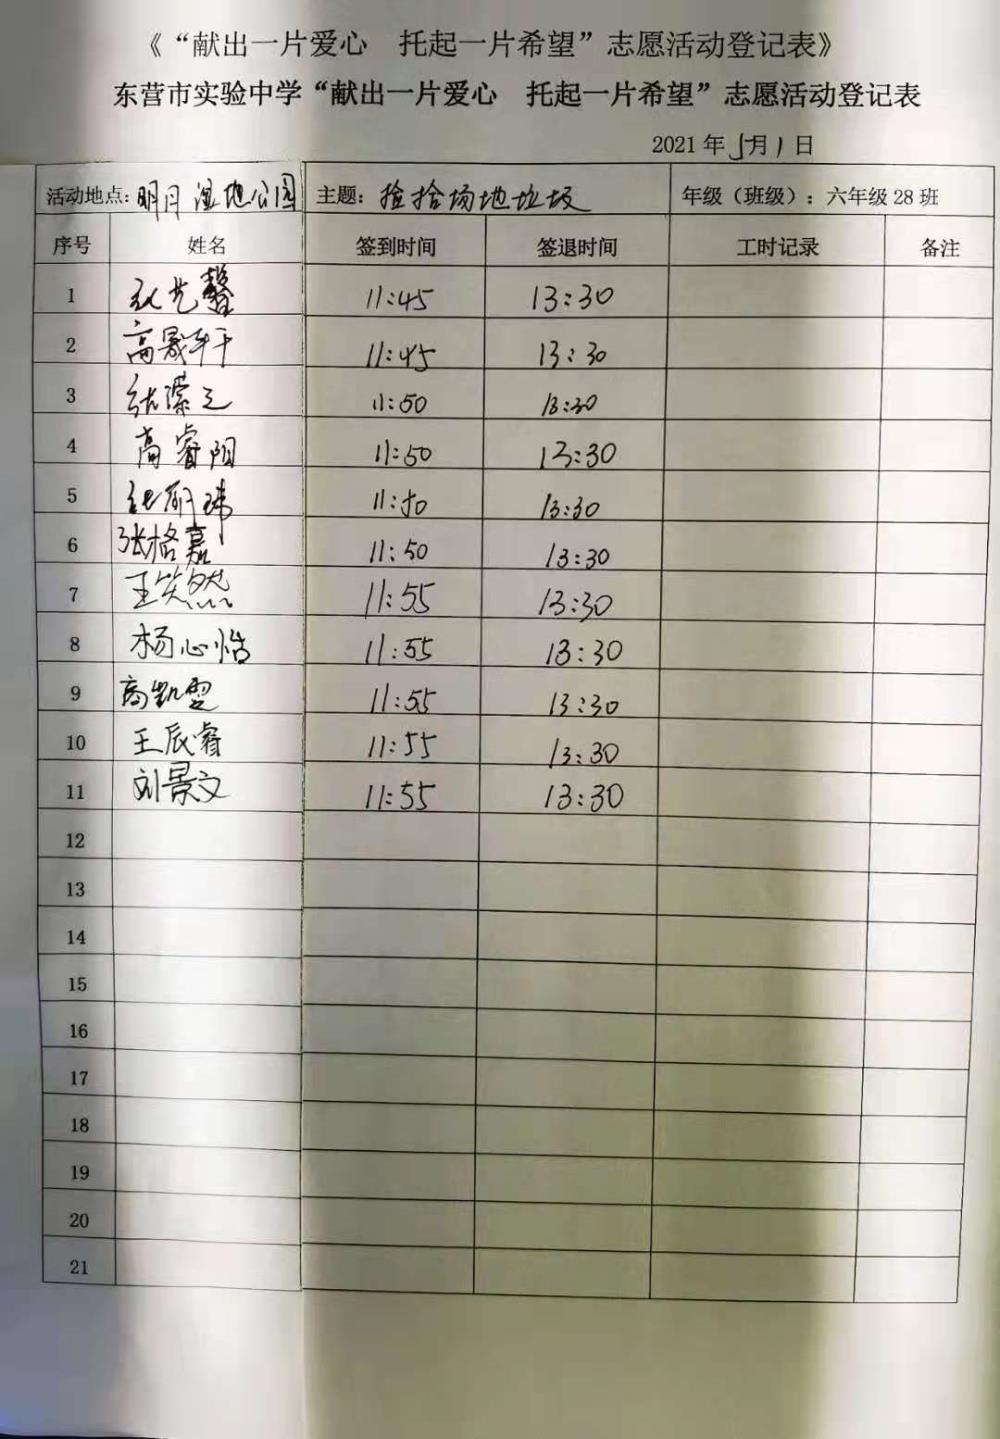 《“献出一片爱心 托起一片希望”志愿活动登记表》
东营市实验中学“献出一片爱心 托起一片希望”志愿活动登记表
2021 年 5月 1 日
活动地点: 明月湿地公园 主题: 捡拾场地垃圾 年级（班级）: 六年级 28 班
序号 姓名 签到时间 签退时间 工时记录 备注
1 艺馨 11:45 13:30
2 高晟轩 11:45 13:30
3 张潆之 11:50 13:30
4 高睿阳 11:50 13:30
5 张 玮 11:50 13:30
6 张格嘉 11:50 13:30
7 王笑然 11:55 13:30
8 杨心怡 11:55 13:30
9 高凯雯 11:55 13:30
10 王辰睿 11:55 13:30
11 刘景文 11:55 13:30
12
13
14
15
16
17
18
19
20
21